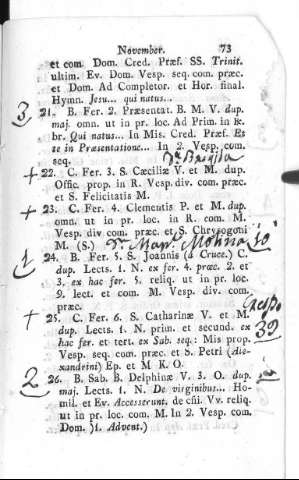 November. 73
et com. Dom. Cred. Præf. SS. Trinit.
ultim. Ev. Dom. Vesp. seq. com. præc.
et Dom. Ad Completor. et Hor. final.
Hymn. Jesu... qui natus...
3 21. B. Fer. 2. Præsentat. B. M. V. dup.
maj. omn. ut in pr. loc. Ad Prim. in ℞.
br. Qui natus... In Mis. Cred. Præf. Et
te in Præsentatione... In 2. Vesp. com.
seq.
+ 22. C. Fer. 3. S. Cæciliæ V. et M. dup.
Offic. prop. in R. Vesp. div. com. præc.
et S. Felicitatis M.
+ 23. C. Fer. 4. Clementis P. et M. dup.
omn. ut in pr. loc. in R. com. M.
Vesp. div com. præc. et S. Chrysogoni
M. (S.) Molina 10
1 24. B. Fer. 5. S. Joannis (a Cruce.) C.
dup. Lects. 1. N. ex fer. 4. præc. 2. et
3. ex hac fer. 5. reliq. ut in pr. loc.
9. lect. et com. M. Vesp. div. com.
præc.
+ 25. C. Fer. 6. S. Catharinæ V. et M.
dup. Lects. 1. N. prim. et secund. ex 39
hac fer. et tert. ex Sab. seq.: Mis prop.
Vesp. seq. com. præc. et S. Petri (Ale-
xandrini) Ep. et M K. O.
2 26. B. Sab. B. Delphinæ V. 3. O. dup.
maj. Lects. 1. N. De virginibus... Ho-
mil. et Ev. Accesserunt. de csii. Vv. reliq.
ut in pr. loc. com. M. In 2. Vesp. com.
Dom. )1. Advent.)